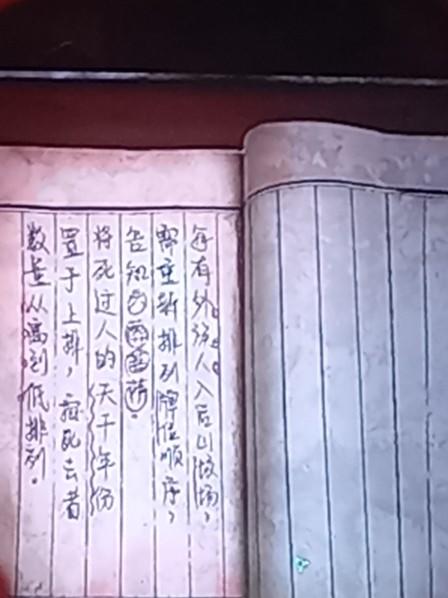 每有外人入后山坟场，
需重新排列牌位顺序，
告知
将死过人的天干年份
置于上排，按死去者
数量从高到低排列。